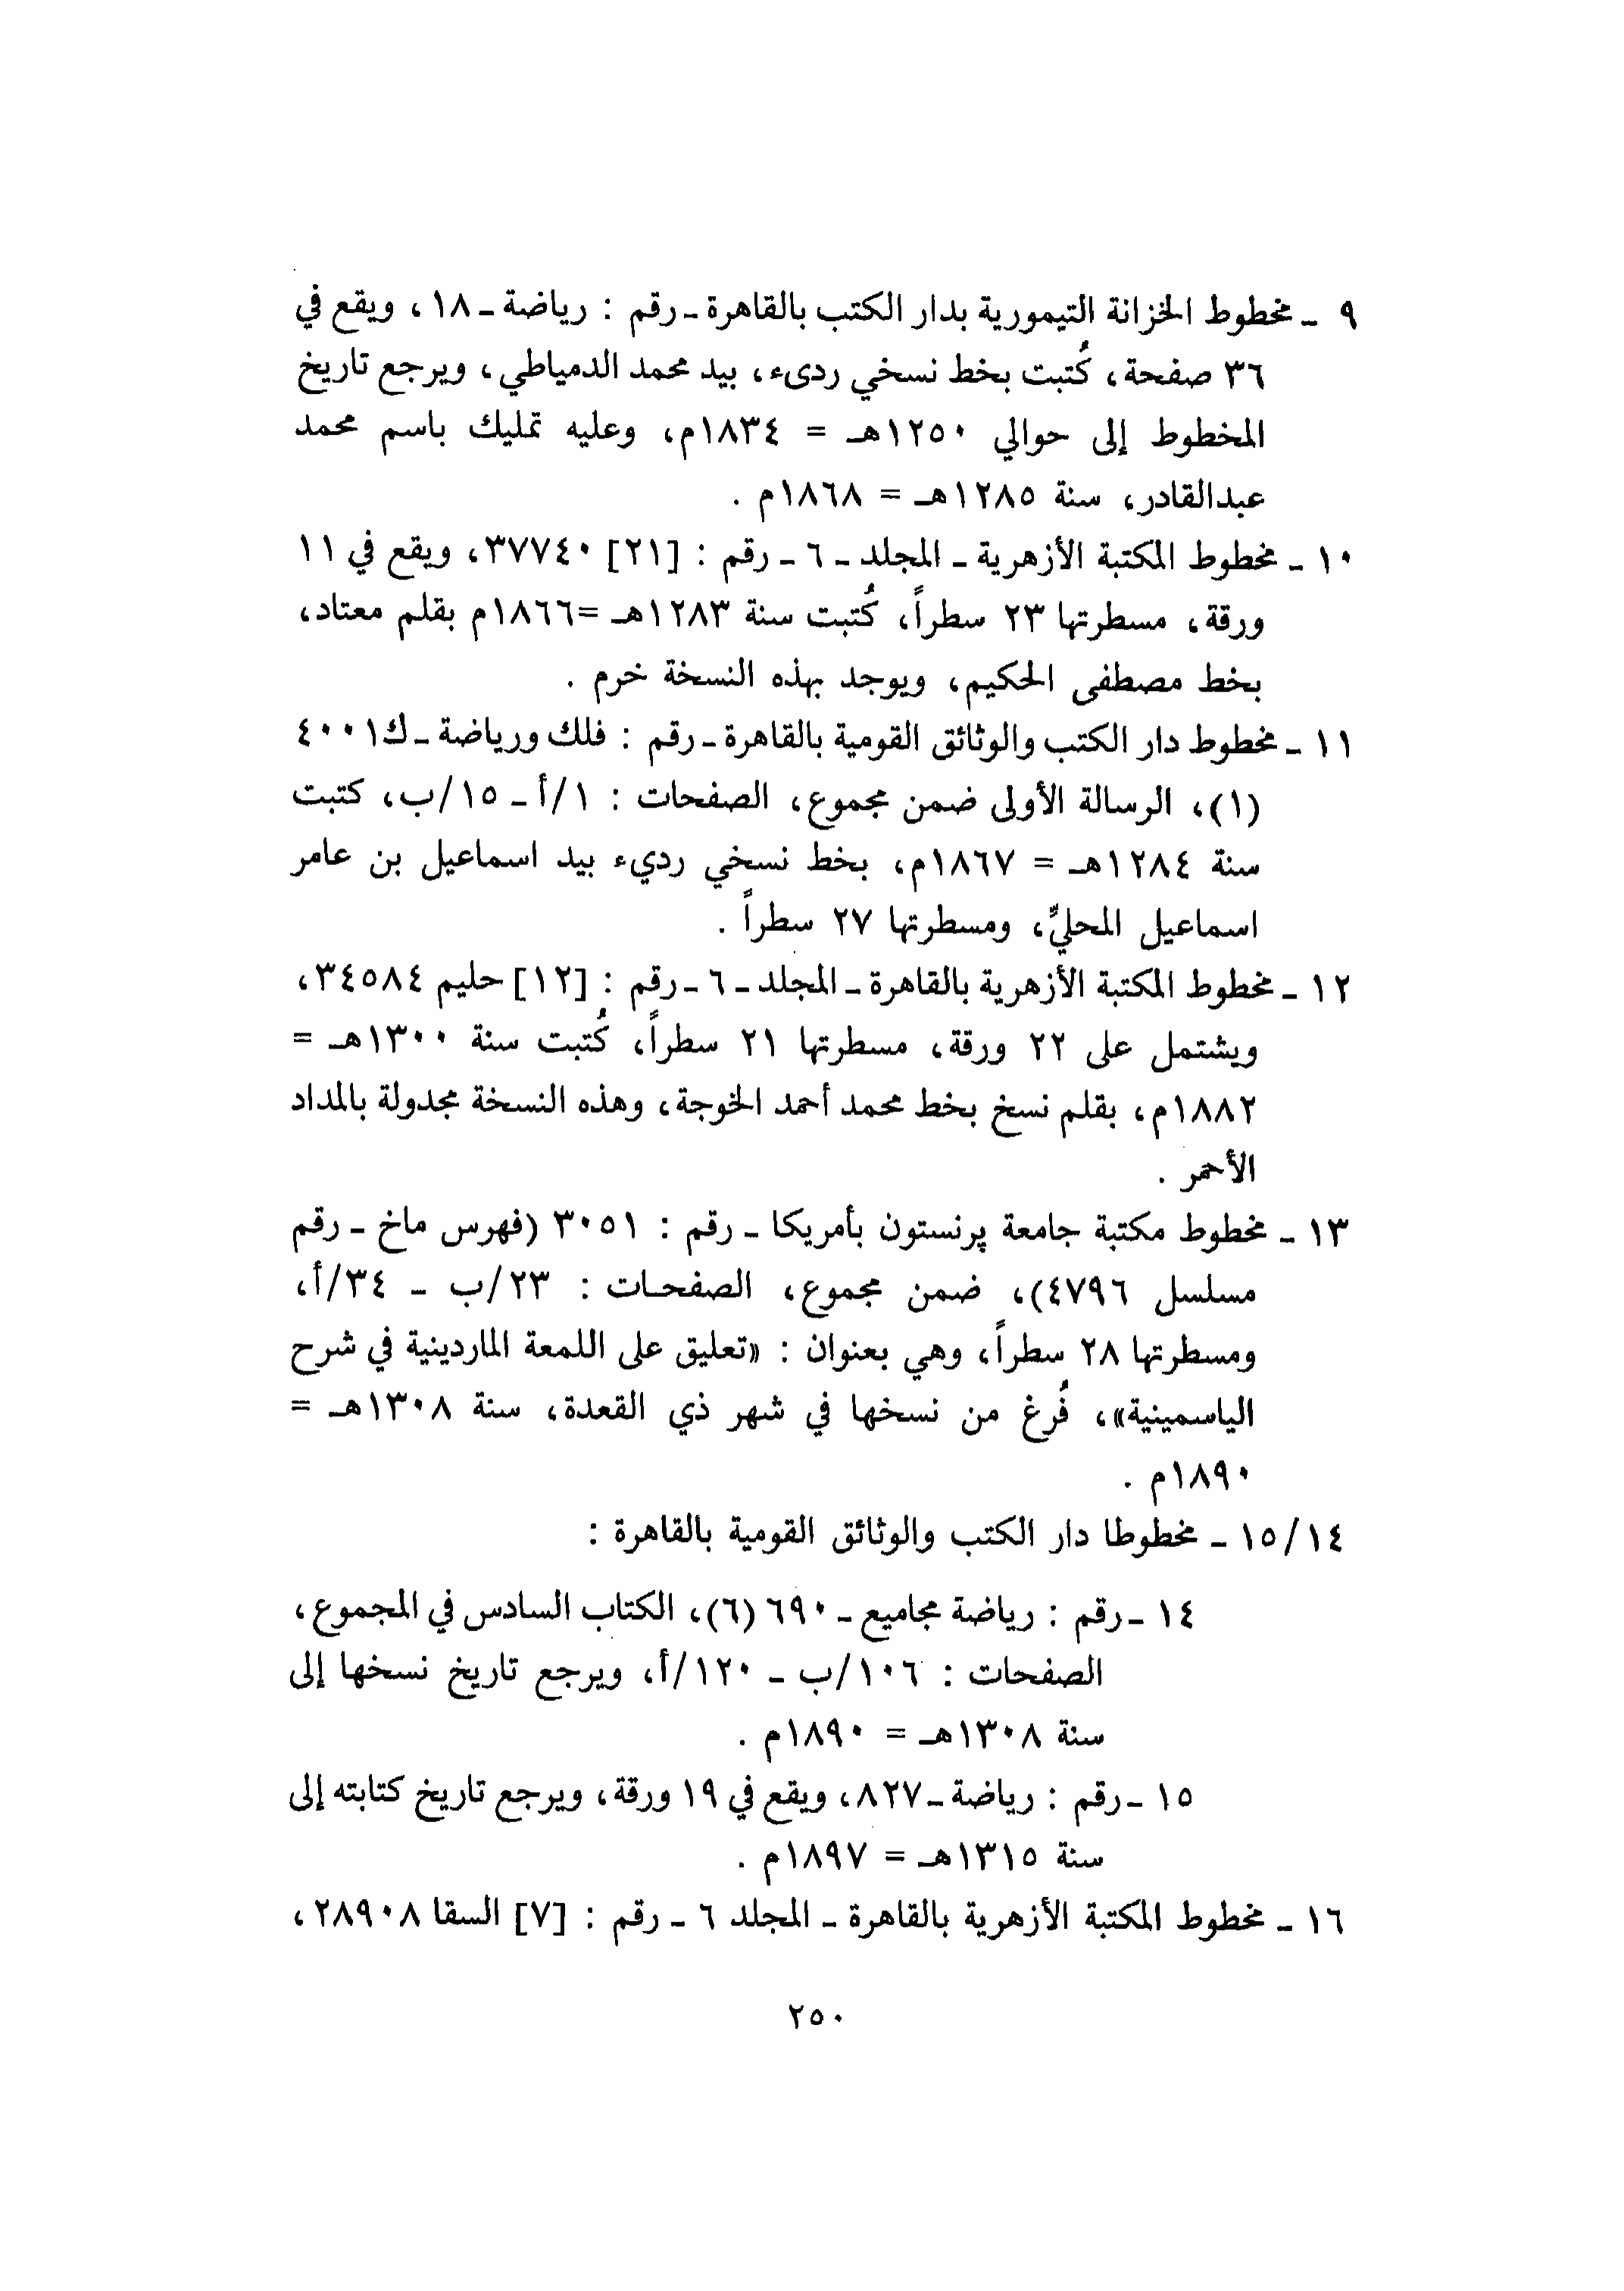 ٩ ـ مخطوط الخزانة التيمورية بدار الكتب بالقاهرة ـ رقم : رياضة ـ ١٨ ، ويقع في
٣٦ صفحة، كُتبت بخط نسخي ردىء، بيد محمد الدمياطي، ويرجع تاريخ
المخطوط إلى حوالي ١٢٥٠هـ = ١٨٣٤م، وعليه تمليك باسم محمد
عبدالقادر، سنة ١٢٨٥هـ = ١٨٦٨م .
١٠ ـ مخطوط المكتبة الأزهرية ـ المجلد ـ ٦ ـ رقم : [٢١] ٣٧٧٤٠، ويقع في ١١
ورقة، مسطرتها ٢٣ سطراً، كُتبت سنة ١٢٨٣هـ =١٨٦٦م بقلم معتاد،
بخط مصطفى الحكيم، ويوجد بهذه النسخة خرم .
١١ ـ مخطوط دار الكتب والوثائق القومية بالقاهرة ـ رقم : فلك ورياضة ـ ك٤٠٠١
(١)، الرسالة الأولى ضمن مجموع، الصفحات : ١/أ ـ ١٥/ب، كتبت
سنة ١٢٨٤هـ = ١٨٦٧م، بخط نسخي رديء بيد اسماعيل بن عامر
اسماعيل المحليٍّ، ومسطرتها ٢٧ سطراً .
١٢ ـ مخطوط المكتبة الأزهرية بالقاهرة ـ المجلد ـ ٦ ـ رقم : [١٢] حليم ٣٤٥٨٤،
ويشتمل على ٢٢ ورقة، مسطرتها ٢١ سطراً، كُتبت سنة ١٣٠٠هـ =
١٨٨٢م، بقلم نسخ بخط محمد أحمد الخوجة، وهذه النسخة مجدولة بالمداد
الأحمر .
١٣ ـ مخطوط مكتبة جامعة پرنستون بأمريكا ـ رقم : ٣٠٥١ (فهرس ماخ ـ رقم
مسلسل ٤٧٩٦)، ضمن مجموع، الصفحات : ٢٣/ب ـ ٣٤/أ،
ومسطرتها ٢٨ سطراً، وهي بعنوان : «تعليق على اللمعة الماردينية في شرح
الياسمينية»، فُرغ من نسخها في شهر ذي القعدة، سنة ١٣٠٨هـ =
١٨٩٠م .
١٥/١٤ ـ مخطوطا دار الكتب والوثائق القومية بالقاهرة :
١٤ ـ رقم : رياضة مجاميع ـ ٦٩٠ (٦)، الكتاب السادس في المجموع،
الصفحات : ١٠٦/ب ـ ١٢٠/أ، ويرجع تاريخ نسخها إلى
سنة ١٣٠٨هـ = ١٨٩٠م .
١٥ ـ رقم : رياضة ـ ٨٢٧، ويقع في ١٩ ورقة، ويرجع تاريخ كتابته إلى
سنة ١٣١٥هـ = ١٨٩٧م .
١٦ ـ مخطوط المكتبة الأزهرية بالقاهرة ـ المجلد ٦ ـ رقم : [٧] السقا ٢٨٩٠٨،
٢٥٠